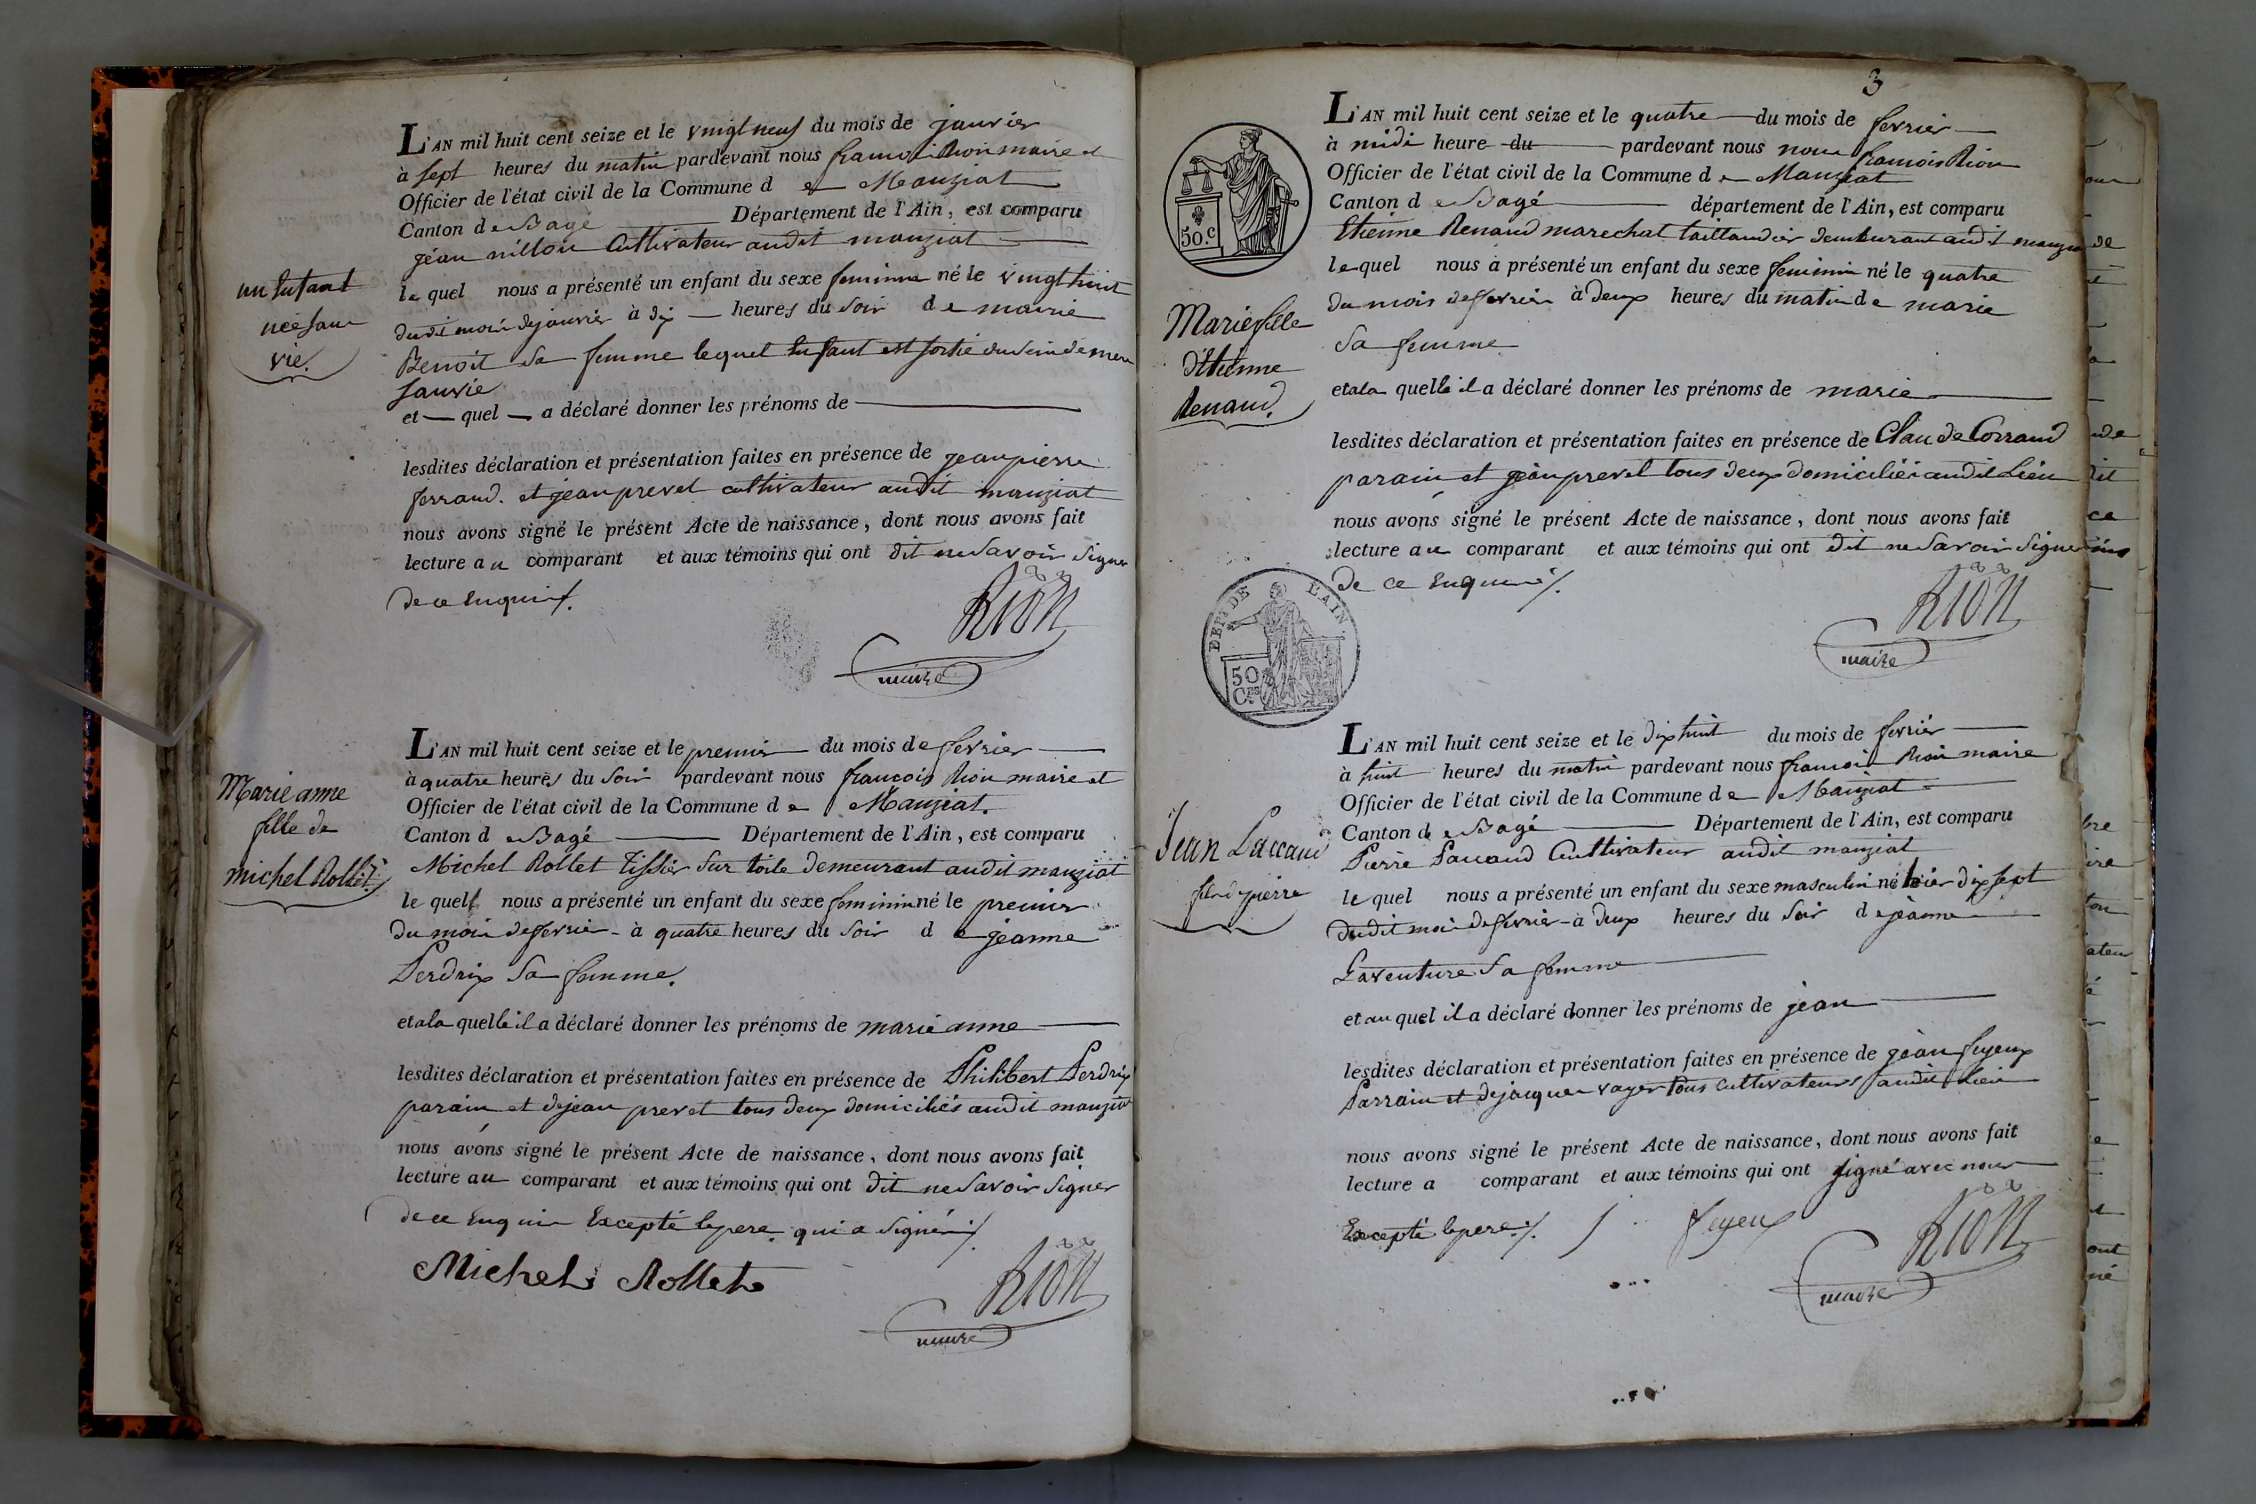 L'AN mil huit cent seize et le vingt neuf du mois de janvier
à sept heures du matin pardevant nous francois Rion maire et
Officier de l'état civil de la Commune de Manziat
Canton de Bagé Département de l'Ain, est comparu
jean nillon Cultivateur audit manziat
un Enfant
née sans
vie.
le quel nous a présenté un enfant du sexe feminin né le vingt huit
dudit mois de janvier à dix heures du soir de marie
Benoit sa femme lequel Enfant est sortie du sein de mere
sanvie
et quel a déclaré donner les prénoms de
lesdites déclaration et présentation faites en présence de jean pierre
ferraud. et jean prevel cultivateur audit manziat
nous avons signé le présent Acte de naissance, dont nous avons fait
lecture au comparant et aux témoins qui ont dit ne Savoir Signer
de ce Enquis /.
Rion
maire
L'AN mil huit cent seize et le premier du mois de fevrier
à quatre heures du Soir pardevant nous francois Rion maire et
Officier de l'état civil de la Commune de Manziat.
Canton de Bagé Département de l'Ain, est comparu
Marie anne
fille de
michel Rollet
Michel Rollet Tissier Sur toile demeurant audit manziat
le quel nous a présenté un enfant du sexe feminin né le premier
du mois de fevrier à quatre heures du Soir de jeanne
Perdrix Sa femme.
et a la quelle il a déclaré donner les prénoms de marie anne
lesdites déclaration et présentation faites en présence de Philibert Perdrix
parain et de jean prevel tous deux domiciliés audit manziat
nous avons signé le présent Acte de naissance, dont nous avons fait
lecture au comparant et aux témoins qui ont dit ne Savoir Signer
de ce Enquis Excepté le pere qui a signé /.
Michel Rollet
Rion
maire
3
L'AN mil huit cent seize et le quatre du mois de fevrier
à midi heure du pardevant nous nous francois Rion
Officier de l'état civil de la Commune de Manziat
Canton de Bagé département de l'Ain, est comparu
50.c
Etienne Renaud marechal taillandier demeurant audit manziat
le quel nous a présenté un enfant du sexe feminin né le quatre
du mois de fevrier à deux heures du matin de marie
Sa femme
Marie fille
d'Etienne
Renaud.
et a la quelle il a déclaré donner les prénoms de marie
lesdites déclaration et présentation faites en présence de Claude Corraud
parain et jean prevel tous deux domiciliés audit Lieu
nous avons signé le présent Acte de naissance, dont nous avons fait
lecture au comparant et aux témoins qui ont dit ne Savoir Signer
de ce Enquis /.
DEP. DE L'AIN
50
Ces
Rion
maire
L'AN mil huit cent seize et le dix huit du mois de fevrier
à huit heures du matin pardevant nous francois Rion maire
Officier de l'état civil de la Commune de Manziat
Canton de Bagé Département de l'Ain, est comparu
Pierre Laccaud Cultivateur audit manziat
Jean Laccaud
fils de pierre
le quel nous a présenté un enfant du sexe masculin né hier dix sept
dudit mois de fevrier à deux heures du Soir de jeanne
Laventure Sa femme
et au quel il a déclaré donner les prénoms de jean
lesdites déclaration et présentation faites en présence de jean feyeux
Parrain et de jacques voyer tous cultivateurs audit Lieu
nous avons signé le présent Acte de naissance, dont nous avons fait
lecture a comparant et aux témoins qui ont signé avec nous
Excepté le pere /. feyeux
Rion
maire